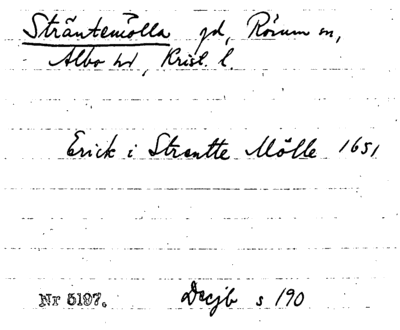 Sträntemölla gd, Rörum sn,
Albo hd, Krist. l.
Erick i Strantte Mölle 1651
Nr 5197. Decjb s 190